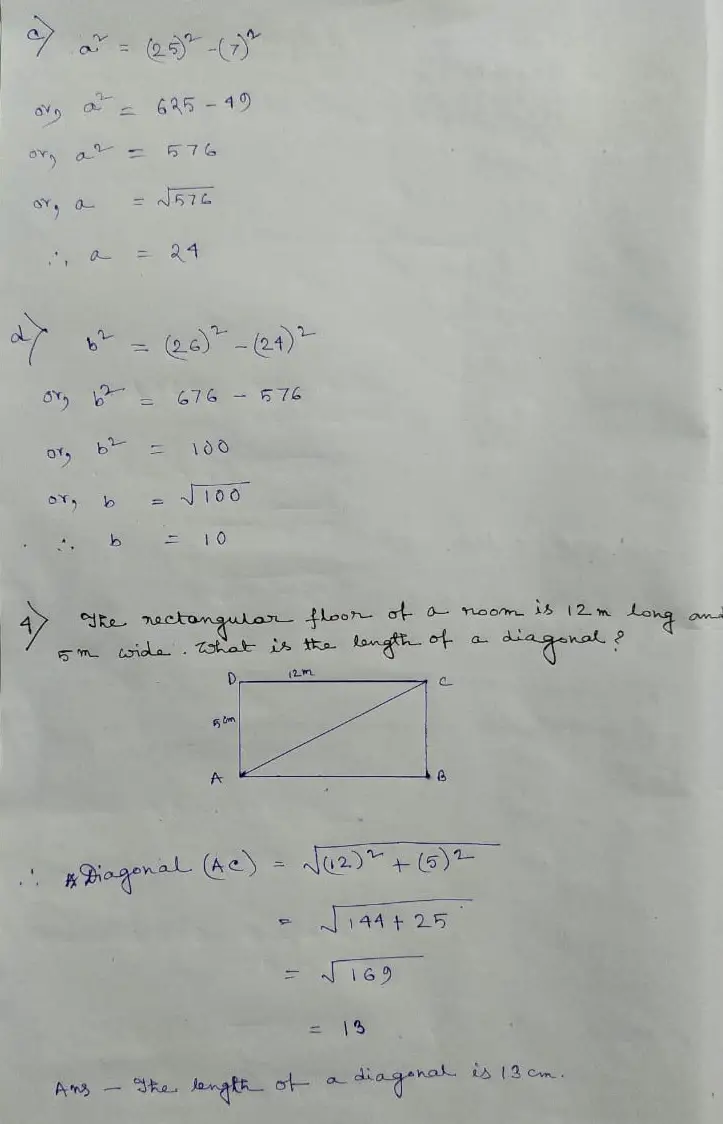 c) a² = (25)² - (7)²
or, a² = 625 - 49
or, a² = 576
or, a = √576
∴ a = 24
d) b² = (26)² - (24)²
or, b² = 676 - 576
or, b² = 100
or, b = √100
∴ b = 10
4) The rectangular floor of a room is 12 m long and
5 m wide. What is the length of a diagonal?
D 12m C
5 cm
A B
∴ Diagonal (AC) = √(12)² + (5)²
= √144 + 25
= √169
= 13
Ans - The length of a diagonal is 13 cm.